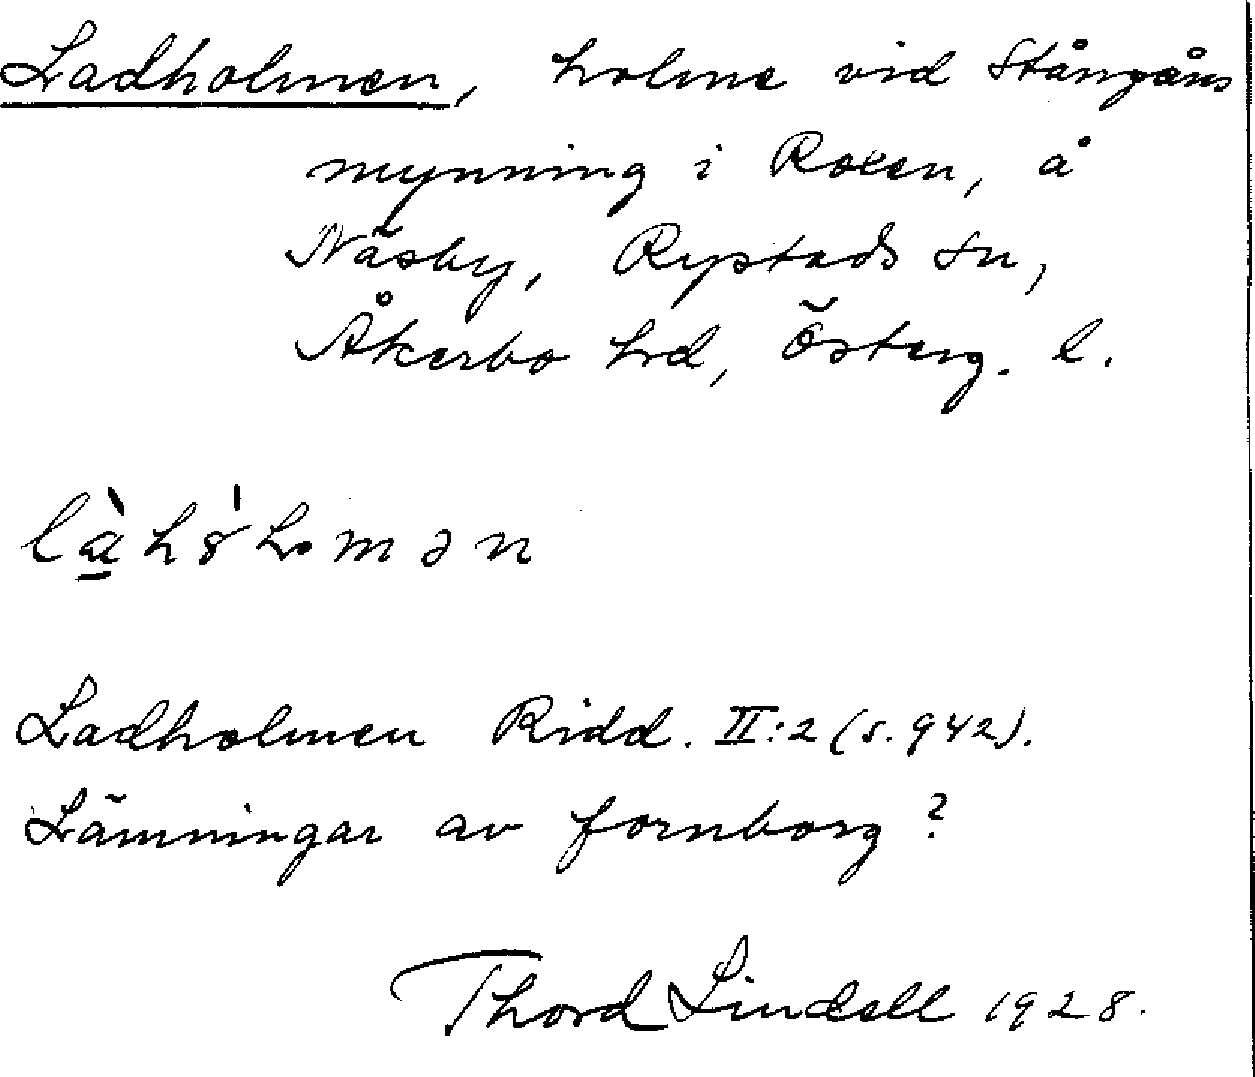 Ladholmen, holme vid Stångåns
mynning i Roxen, å
Näsby, Rystads sn,
Åkerbo hd, Österg. l.
Ladholmen Ridd. II:2 (s. 942).
Lämningar av fornborg?
Thord Lindell 1928.